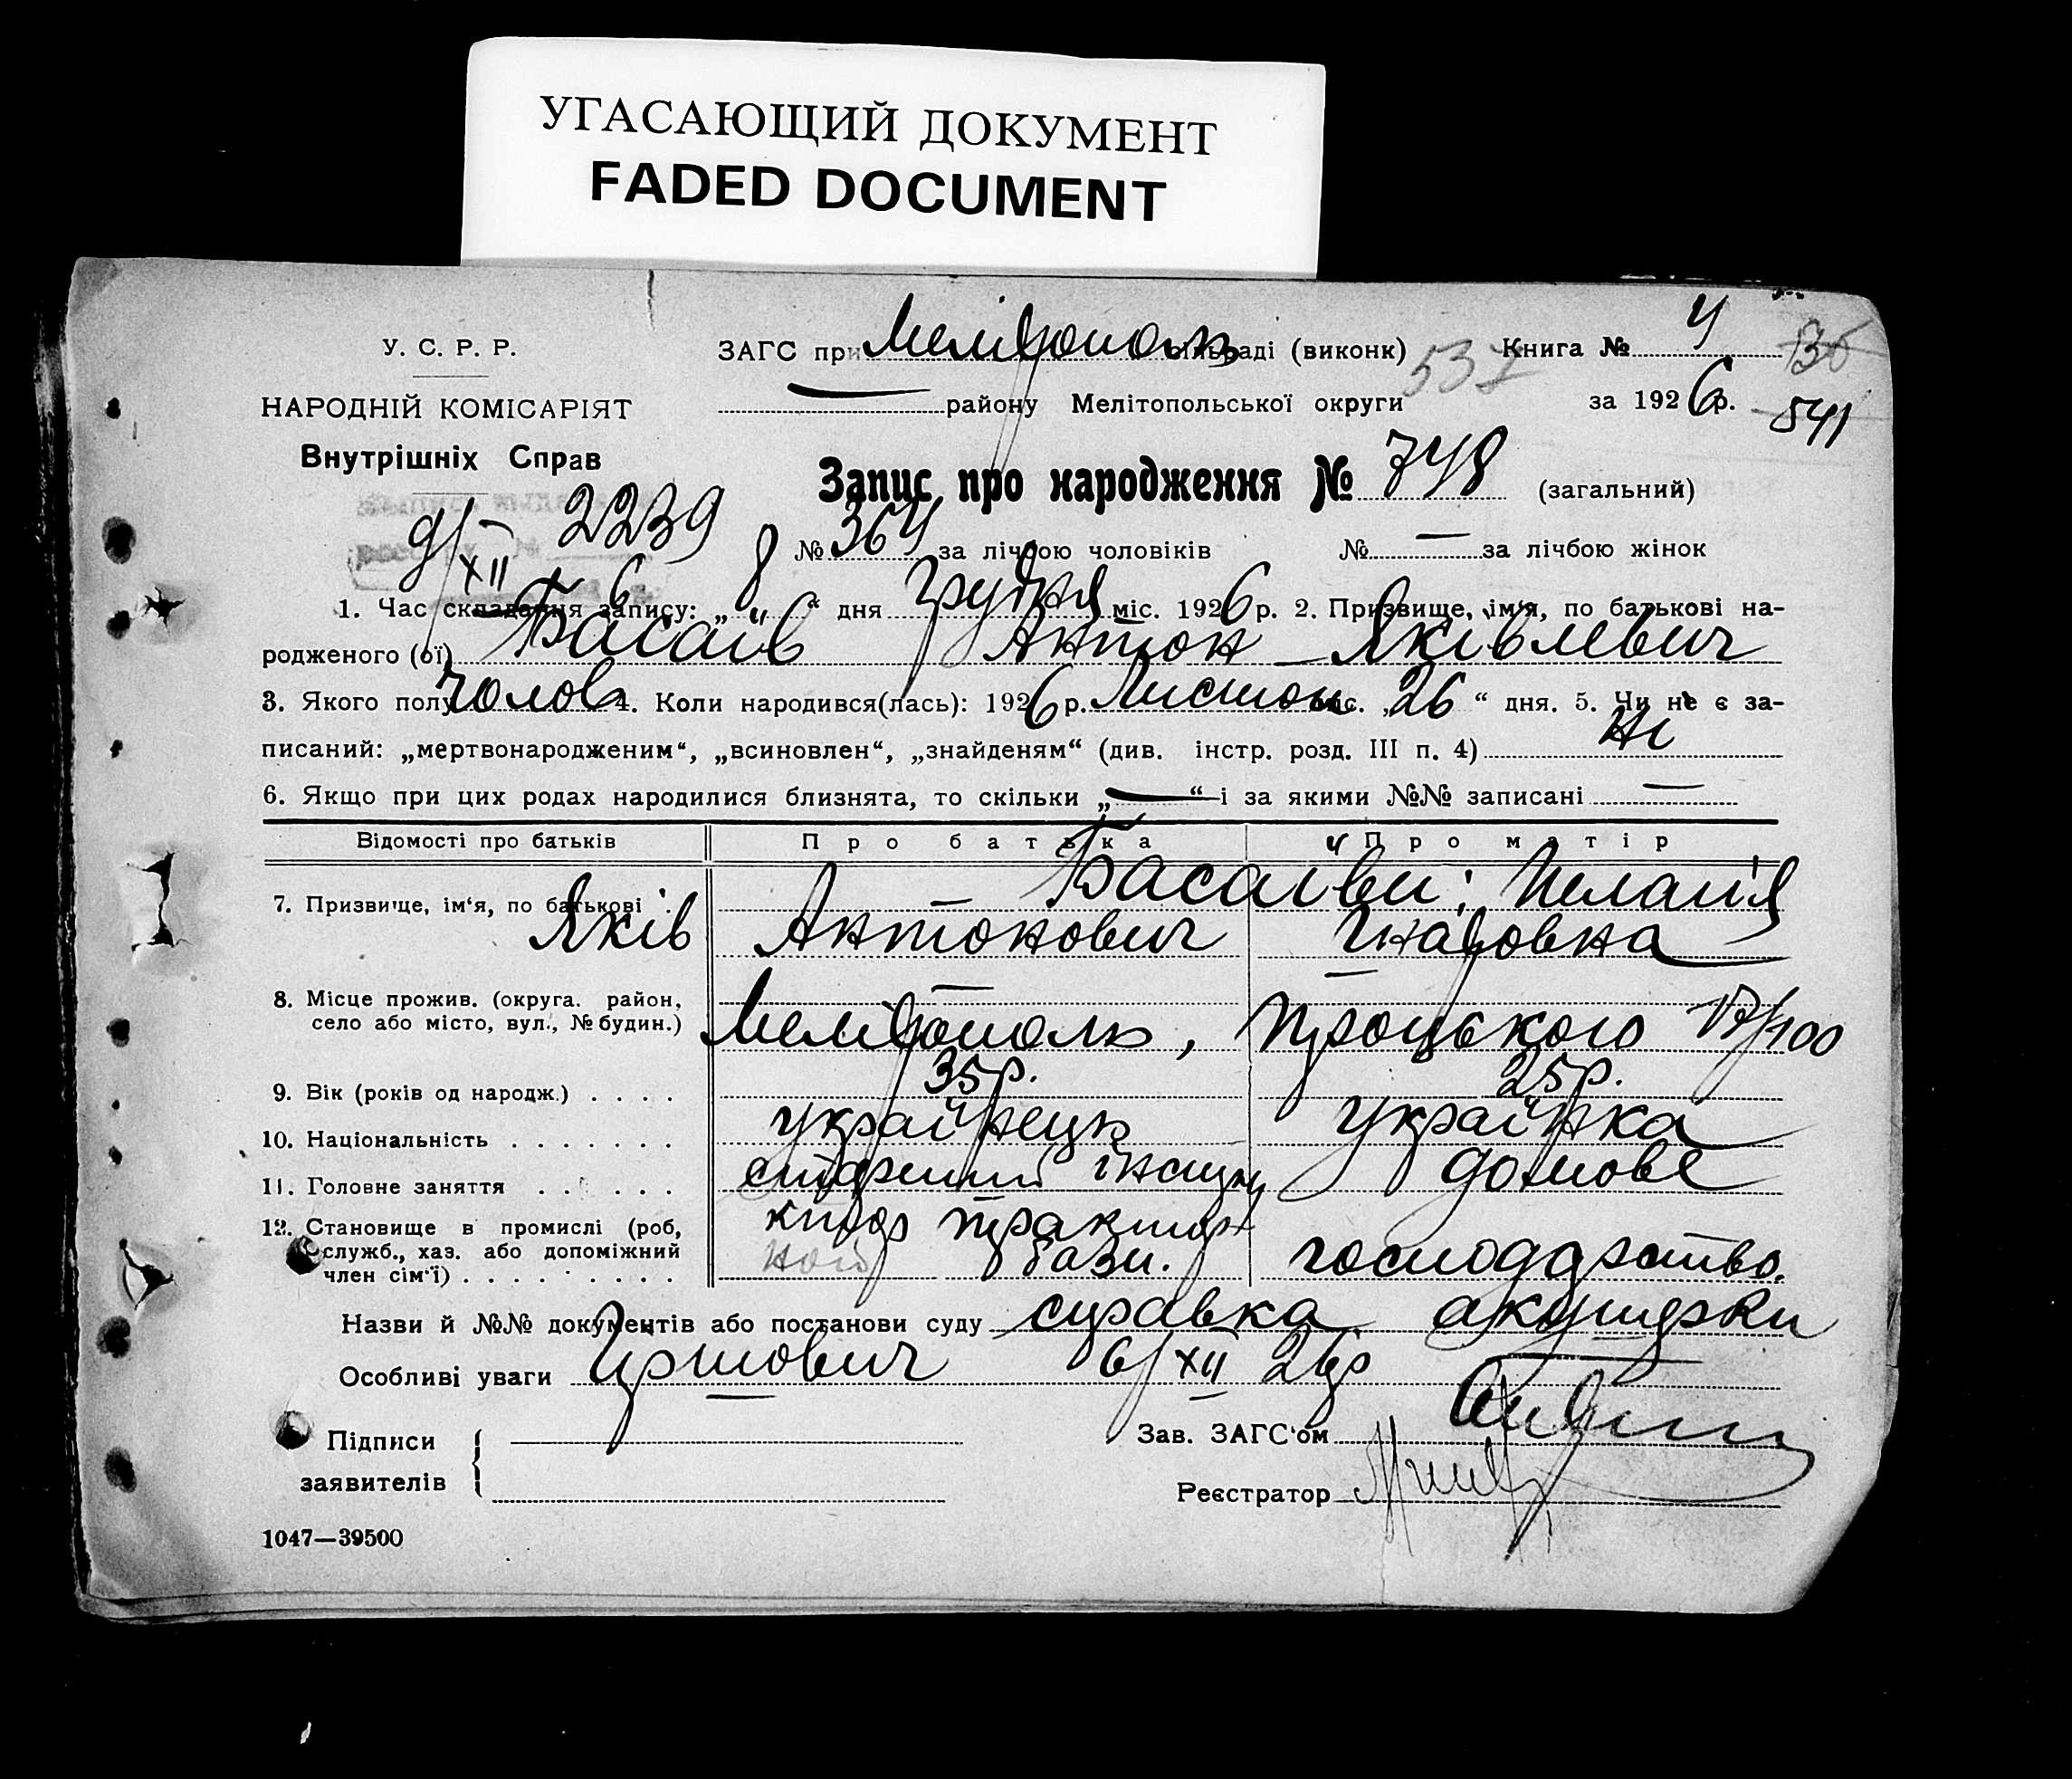 УГАСАЮЩИЙ ДОКУМЕНТ
FADED DOCUMENT
У. С. Р. Р.
ЗАГС при Мелітополь сільраді (виконк) 537 Книга № 4
НАРОДНІЙ КОМІСАРІЯТ
— району Мелітопольської округи за 1926 р. 541
Внутрішніх Справ
Запис про народження № 748 (загальний)
9/XII 6 2239
№ 364 за лічбою чоловіків № — за лічбою жінок
1. Час складання запису: „ 8 “ дня Грудня міс. 1926 р. 2. Призвище, ім'я, по батькові на-
родженого (ої) Басаїв Антон Яківлевич
3. Якого полу чолов 4. Коли народився(лась): 1926 р. Листоп міс. „26 “ дня. 5. Чи не є за-
писаний: „мертвонародженим“, „всиновлен“, „знайденям“ (див. інстр. розд. III п. 4) Ні
6. Якщо при цих родах народилися близнята, то скільки „—“ і за якими №№ записані —
Відомості про батьків Про батька Про матір
7. Призвище, ім'я, по батькові Басаїви: Пелагія
Яків Антонович Гнатовна
8. Місце прожив. (округа. район,
село або місто, вул., № будин.) Мелітополь, Троцького /100
9. Вік (років од народж.) . . . . 35р. 25р.
10. Національність . . . . . . . українець українка
11. Головне заняття . . . . . . старший інстру домове
12. Становище в промислі (роб, ктор трактор
служб., хаз. або допоміжний ной бази. господарство.
член сім'ї) . . . . . . . . .
Назви й №№ документів або постанови суду справка акушерки
Особливі уваги 6/XII 26р
Підписи
заявителів
Зав. ЗАГС'ом
Реєстратор
1047—39500